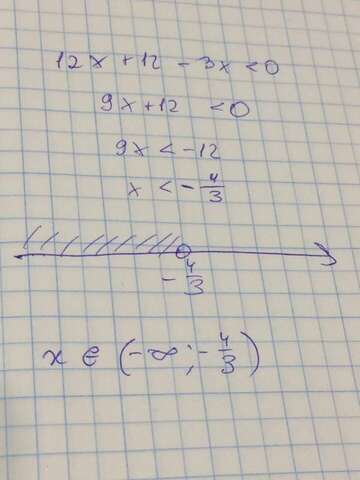 12x + 12 - 3x < 0
9x + 12 < 0
9x < -12
x < -4/3
-4/3
x ∈ (-∞; -4/3)